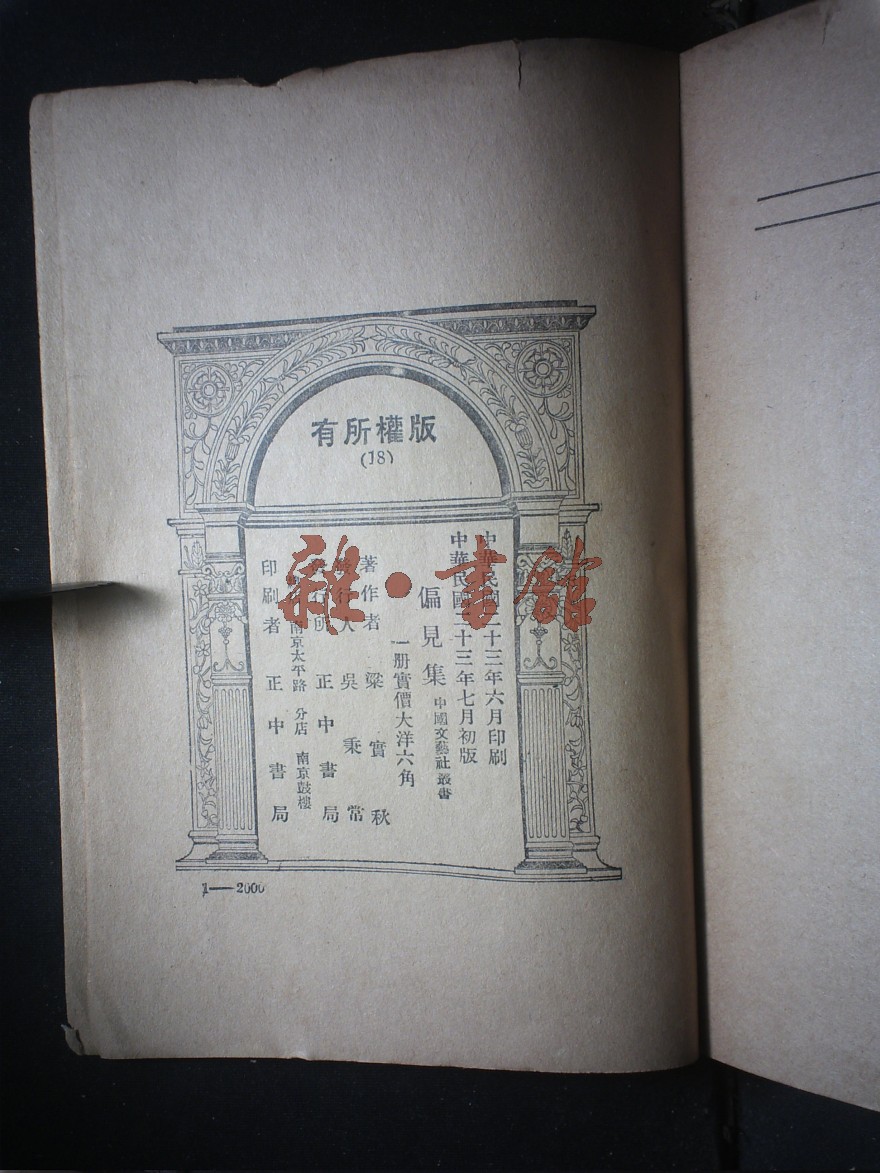 版權所有
(18)
中華民國二十三年六月印刷
中華民國二十三年七月初版
偏見集 中國文藝社叢書
一册實價大洋六角
著作者 梁實秋
發行人 吳秉常
發行所 正中書局
南京太平路 分店 南京鼓樓
印刷者 正中書局
1—2000
雜·書館